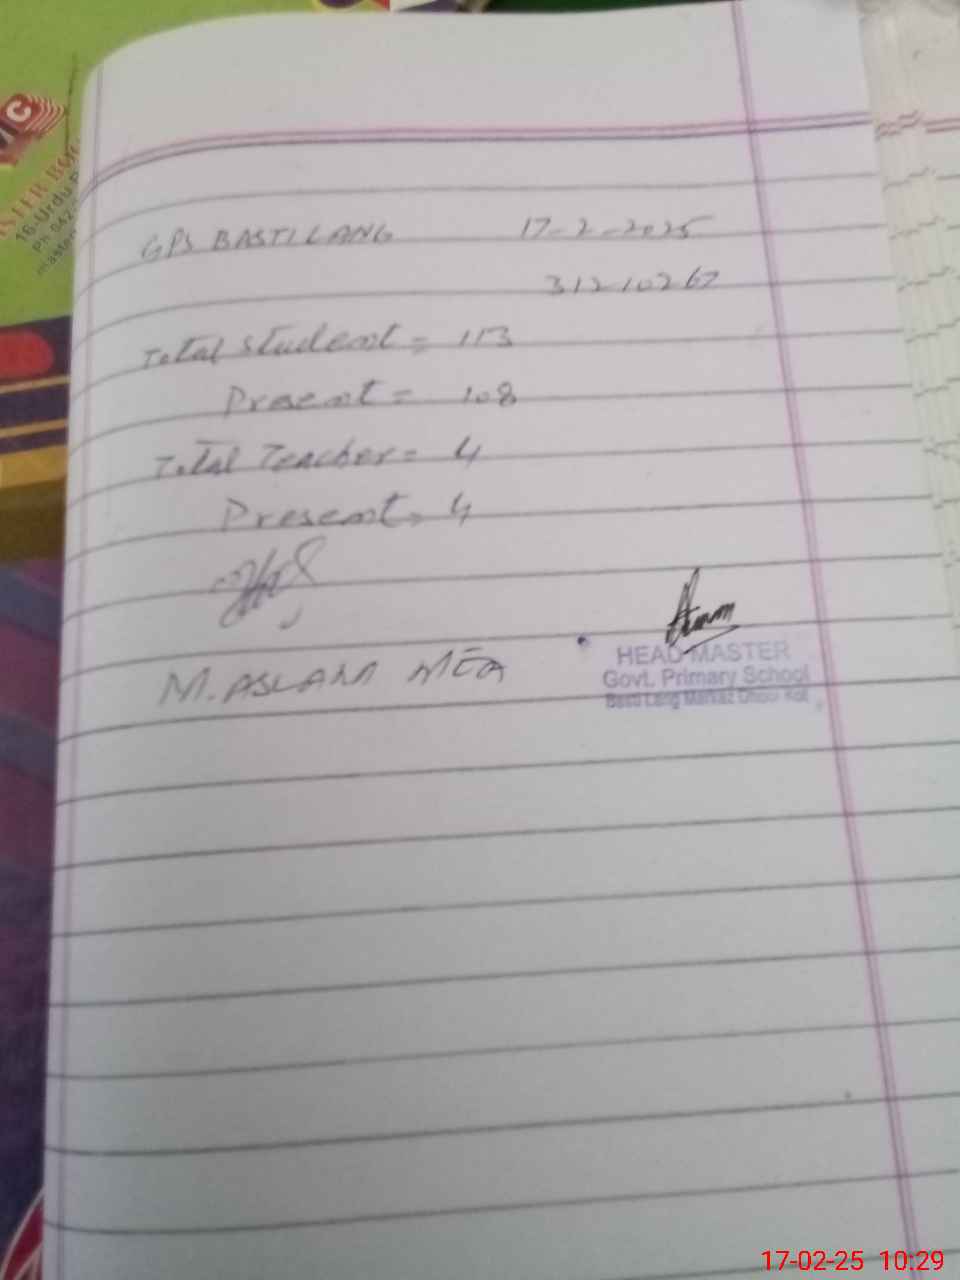 GPS BASTI LANG 17-2-2025
31210267
Total Student = 113
Present = 108
Total Teacher = 4
Present = 4
M. ASLAM MEA
HEAD MASTER
Govt. Primary School
Basti Lang Markaz Dhoor Kot
16-Urdu
Ph: 042
17-02-25 10:29